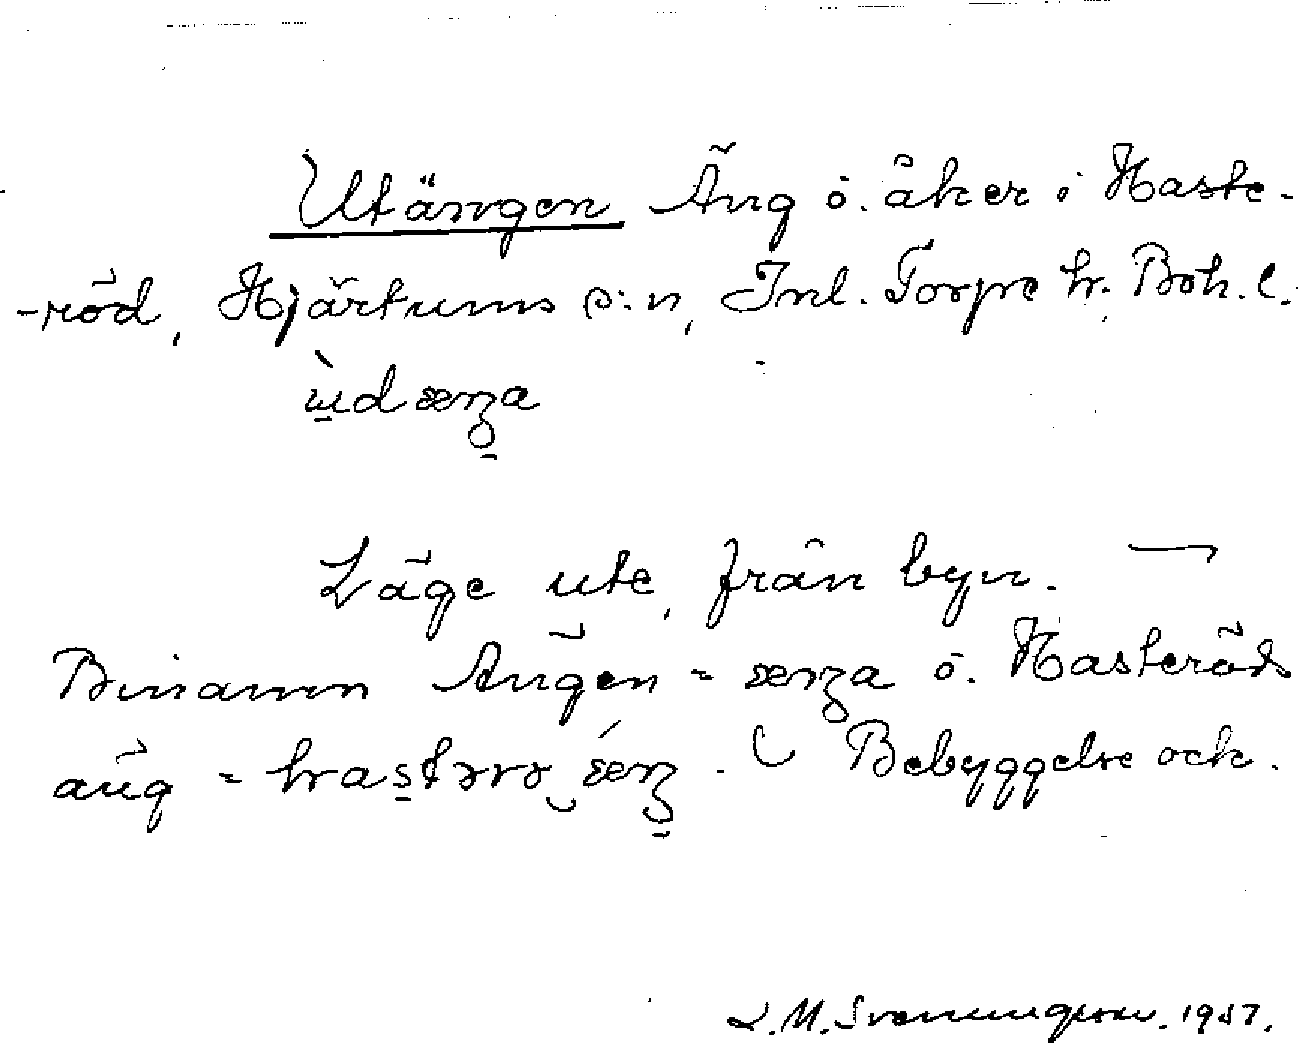 Utängen Äng o. åker i Haste-
-röd, Hjärtums s:n, Inl. Torpe hr. Boh. l.
ùdæŋa
Läge ute, från byn. ¬
Binamn Ängen = æŋa o. Hasteröds
äng = hastərø æŋ. Bebyggelse ock.
L.M. Svenungsson. 1957.